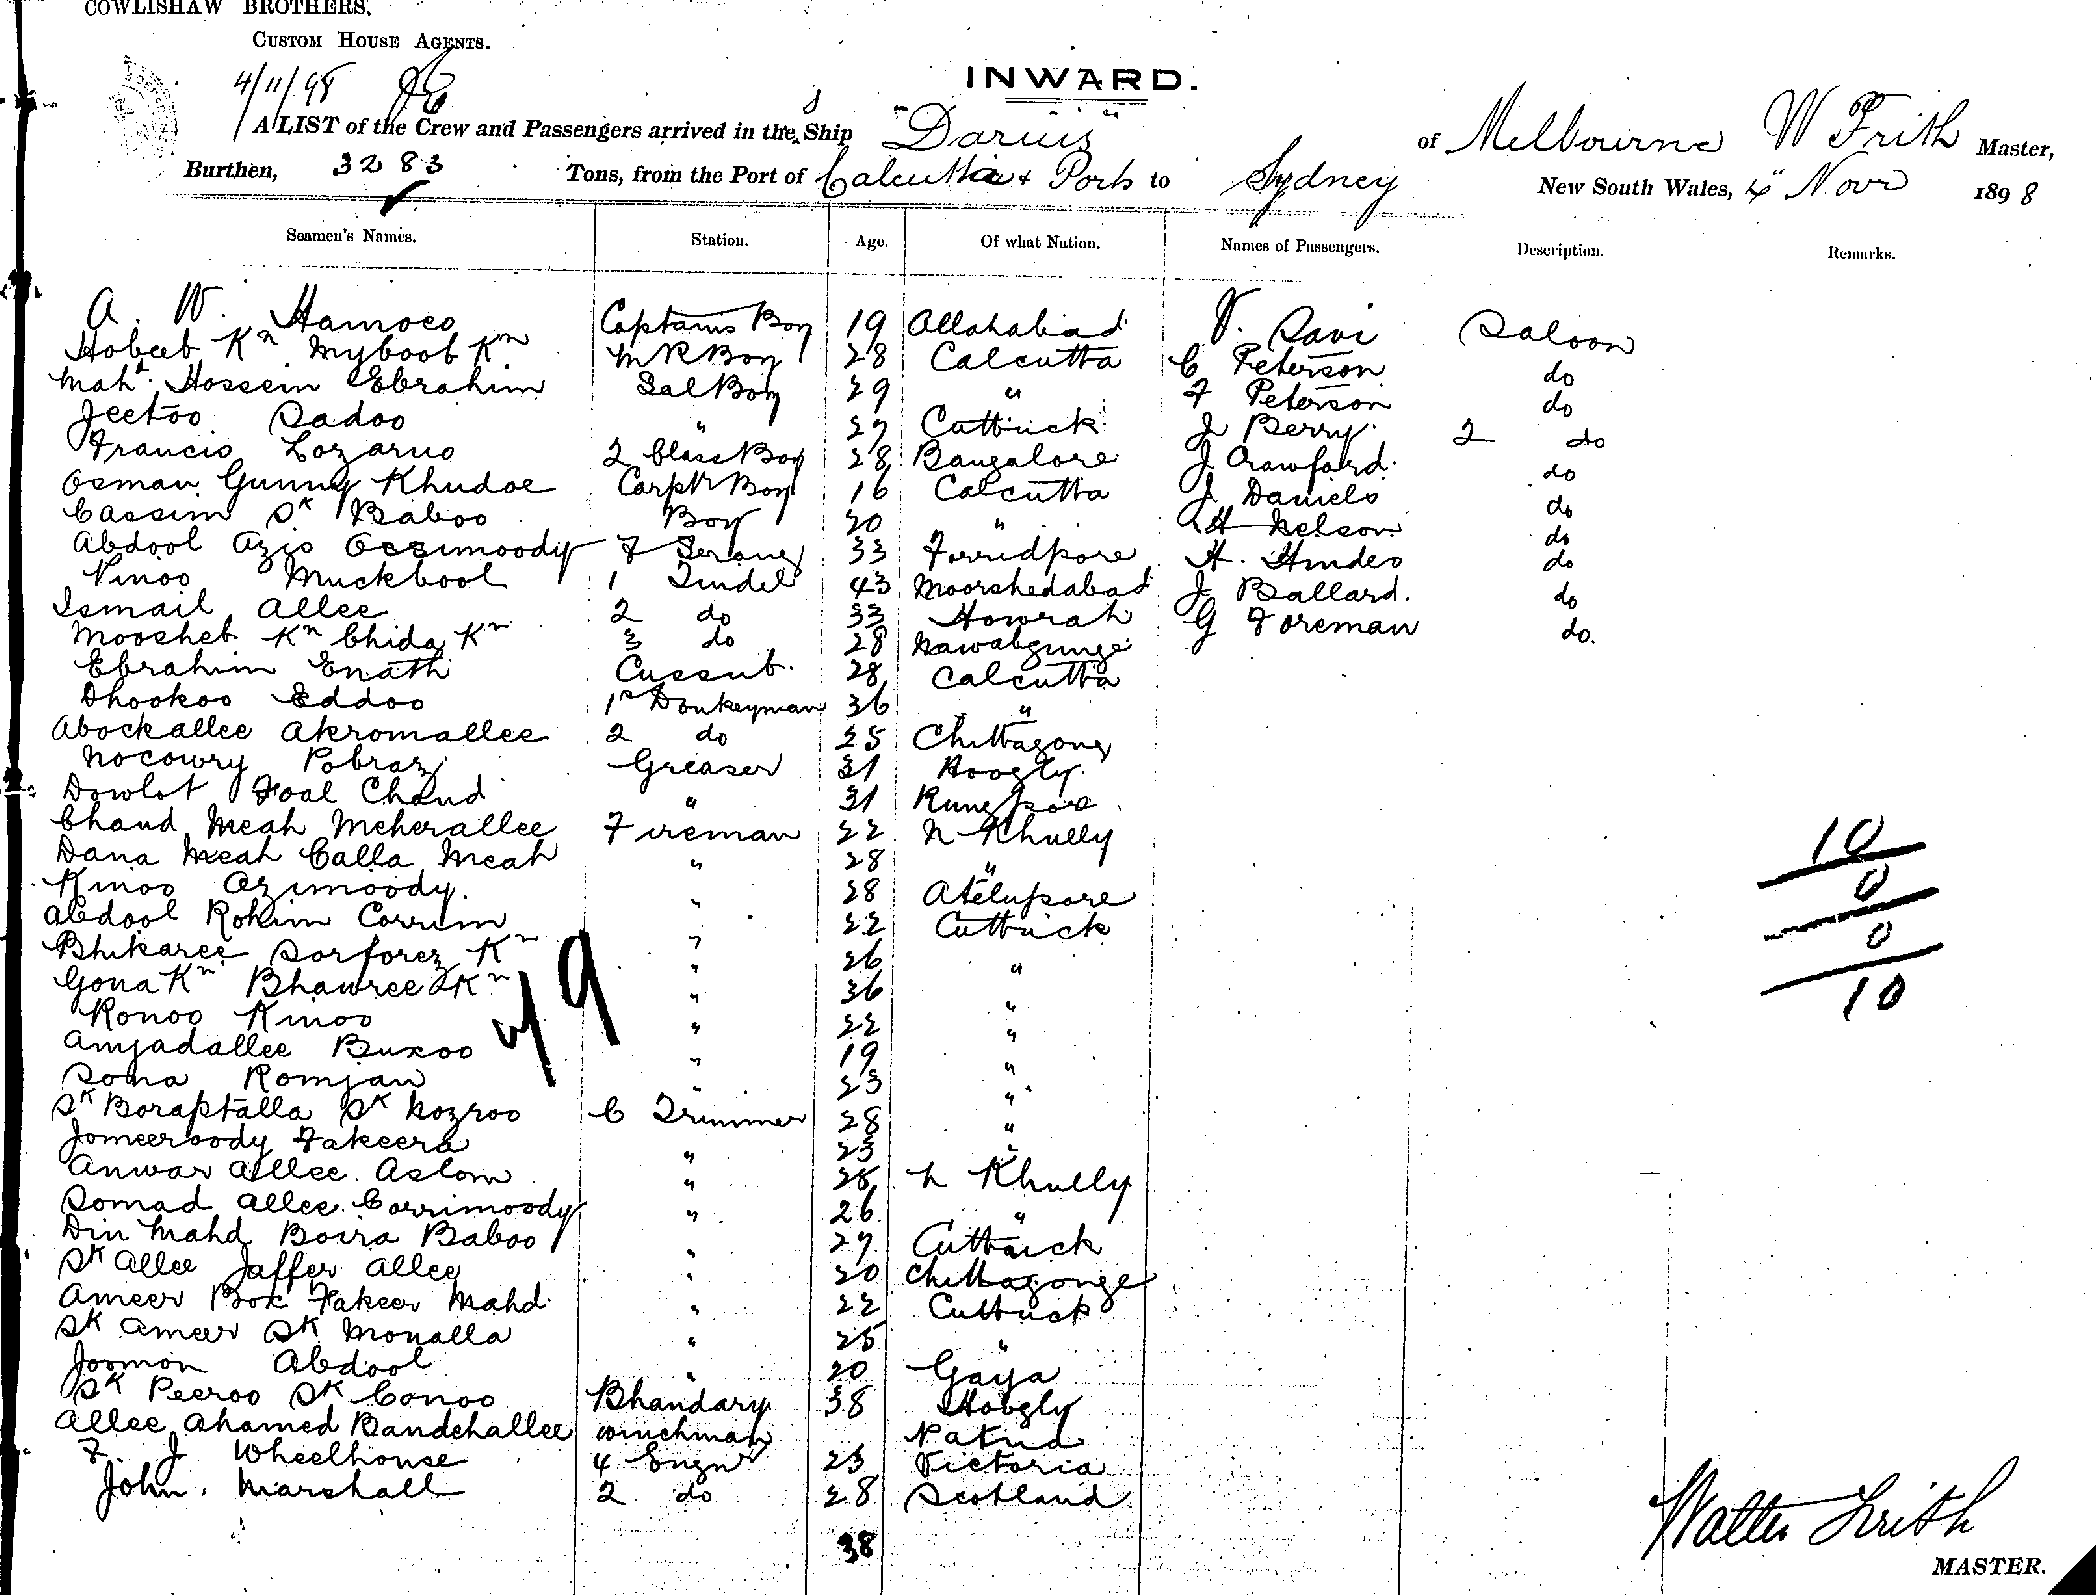 COWLISHAW BROTHERS,
CUSTOM HOUSE AGENTS.
4/11/98
INWARD.
A LIST of the Crew and Passengers arrived in the S Ship "Darius" of Melbourne W Frith Master,
Burthen, 3283 Tons, from the Port of Calcutta & Ports to Sydney New South Wales, 4" Novr 1898
Seamen's Names. Station. Age. Of what Nation. Names of Passengers. Description. Remarks.
A. W. Hamoco Captains Boy 19 Allahabad V. Davi Saloon
Hobeeb Kn Myboob Kn M R Boy 28 Calcutta C Peterson do
Mahd. Hossein Ebrahim Sal Boy 29 " F Peterson do
Jeetoo Sadoo " 27 Cuttuck J Berry 2 do
Francis Lozaruo 2 Class Boy 28 Bangalore J Crawford. do
Osman Gunny Khudoe Carptr Boy 16 Calcutta J Daniels do
Cassim Sk Baboo Boy 20 " H Nelson do
Abdool Azis Oozimoody F Serang 33 Furridpore H. Hindes do
Vinoo Muckbool 1 Tindel 43 Moorshedabad J Ballard. do
Ismail Allee 2 do 33 Howrah G Foreman do.
Moosheb Kn Chida Kn 3 do 28 Nawabgunge
Ebrahim Enath Cussub. 28 Calcutta
Dhookoo Eddoo 1st Donkeyman 36 "
Abockallee Akromallee 2 do 25 Chittagong
Nocowry Pobraz Greaser 31 Hoogly.
Dowlot Foal Chand " 31 Rungpore
Chand Meah Meherallee Fireman 22 N Khully
Dana Meah Calla Meah " 28 "
Kinoo Ozimoody. " 28 Atelupore
Abdool Rohim Corrim " 22 Cuttuck
Bhikaree Sorforez Kn " 26 "
Gona Kn Bhawree Kn " 36 "
Ronoo Kinoo " 22 "
Amjadallee Buxoo " 19 "
Sona Romjan " 23 "
Sk Boraptalla Sk Nozroo C Trimmer 28 "
Jomeeroody Fakeera " 23 "
Anwar Allee Aslom " 28 N Khully
Somad Allee Corrimoody " 26 "
Din Mahd Boira Baboo " 27 Cuttuck
Sk Allee Jaffer Allee " 20 Chittagonge
Ameer Box Fakeer Mahd " 22 Cuttuck
Sk Ameer Sk Monalla " 25 "
Joomon Abdool " 20 Gaya
Sk Peeroo Sk Conoo Bhandary 38 Hoogly
Allee Ahamed Bandehallee Winchman Patna
F. J Wheelhouse 4 Engnr 23 Victoria
John. Marshall 2 do 28 Scotland
38
10
0
0
10
Walter Frith
MASTER.